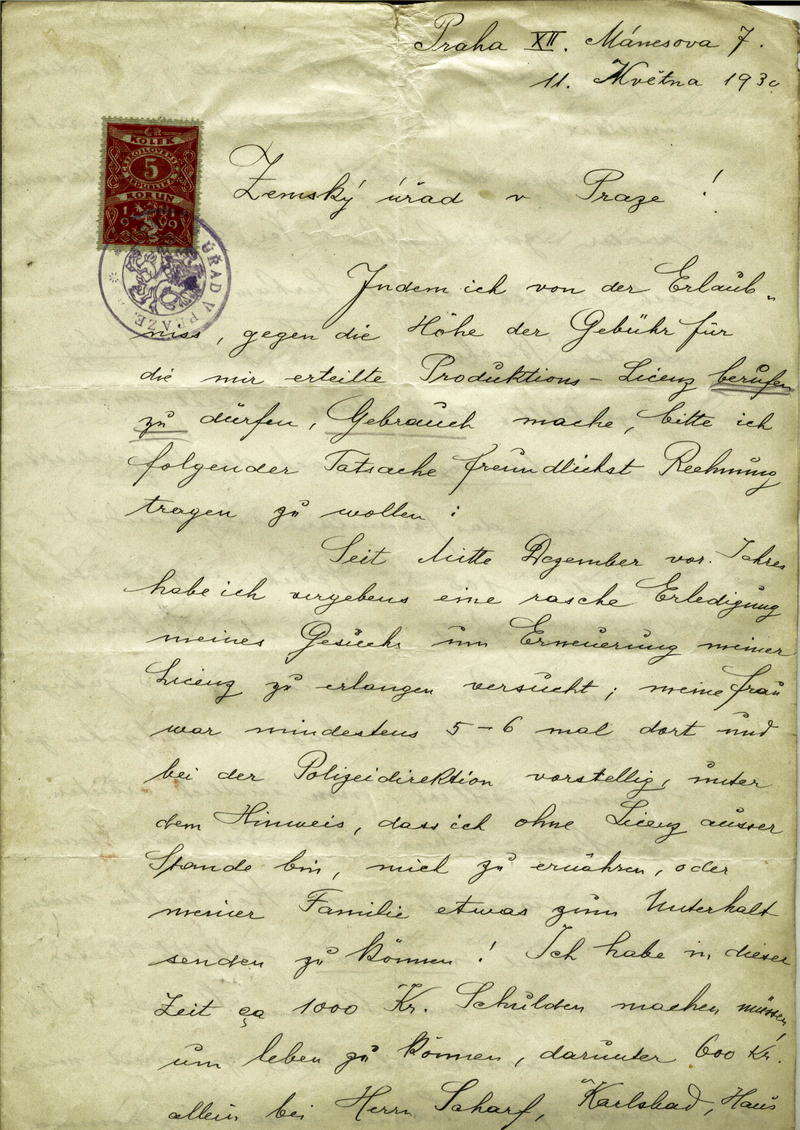 Praha XII. Mánesova 7.
11. Května 1930
KOLEK
5
KORUN
1919
ÚŘAD V PRAZE
Zemský úřad v Praze!
Indem ich von der Erlaub-
niss, gegen die Höhe der Gebühr für
die mir erteilte Produktions-Licenz berufen
zu dürfen, Gebrauch mache, bitte ich
folgender Tatsache freundlichst Rechnung
tragen zu wollen:
Seit Mitte Dezember vor. Jahres
habe ich vergebens eine rasche Erledigung
meines Gesuchs um Erneuerung meiner
Licenz zu erlangen versucht; meine Frau
war mindestens 5-6 mal dort und
bei der Polizeidirektion vorstellig, unter
dem Hinweis, dass ich ohne Licenz ausser
Stande bin, mich zu ernähren, oder
meiner Familie etwas zum Unterhalt
senden zu können! Ich habe in dieser
Zeit ca 1000 Kr. Schulden machen müssen,
um leben zu können, darunter 600 Kr.
allein bei Herrn Scharf, Karlsbad, Haus